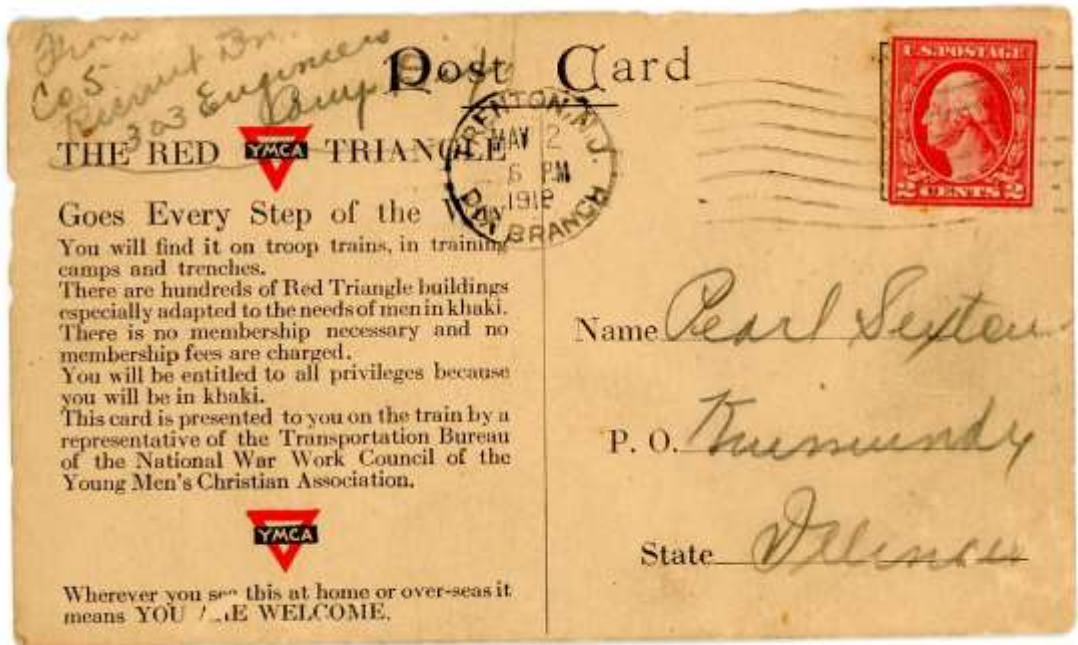 From
Co 5
Recruit Bn.
303 Engineers
Camp Dix
Post Card
TRENTON, N.J.
MAY 2
6 PM
1918
DIX BRANCH
U.S. POSTAGE
2 CENTS 2
THE RED YMCA TRIANGLE
Goes Every Step of the Way
You will find it on troop trains, in training
camps and trenches.
There are hundreds of Red Triangle buildings
especially adapted to the needs of men in khaki.
There is no membership necessary and no
membership fees are charged.
You will be entitled to all privileges because
you will be in khaki.
This card is presented to you on the train by a
representative of the Transportation Bureau
of the National War Work Council of the
Young Men's Christian Association.
YMCA
Wherever you see this at home or over-seas it
means YOU ARE WELCOME.
Name Pearl Sexton
P. O. Kinmundy
State Illinois